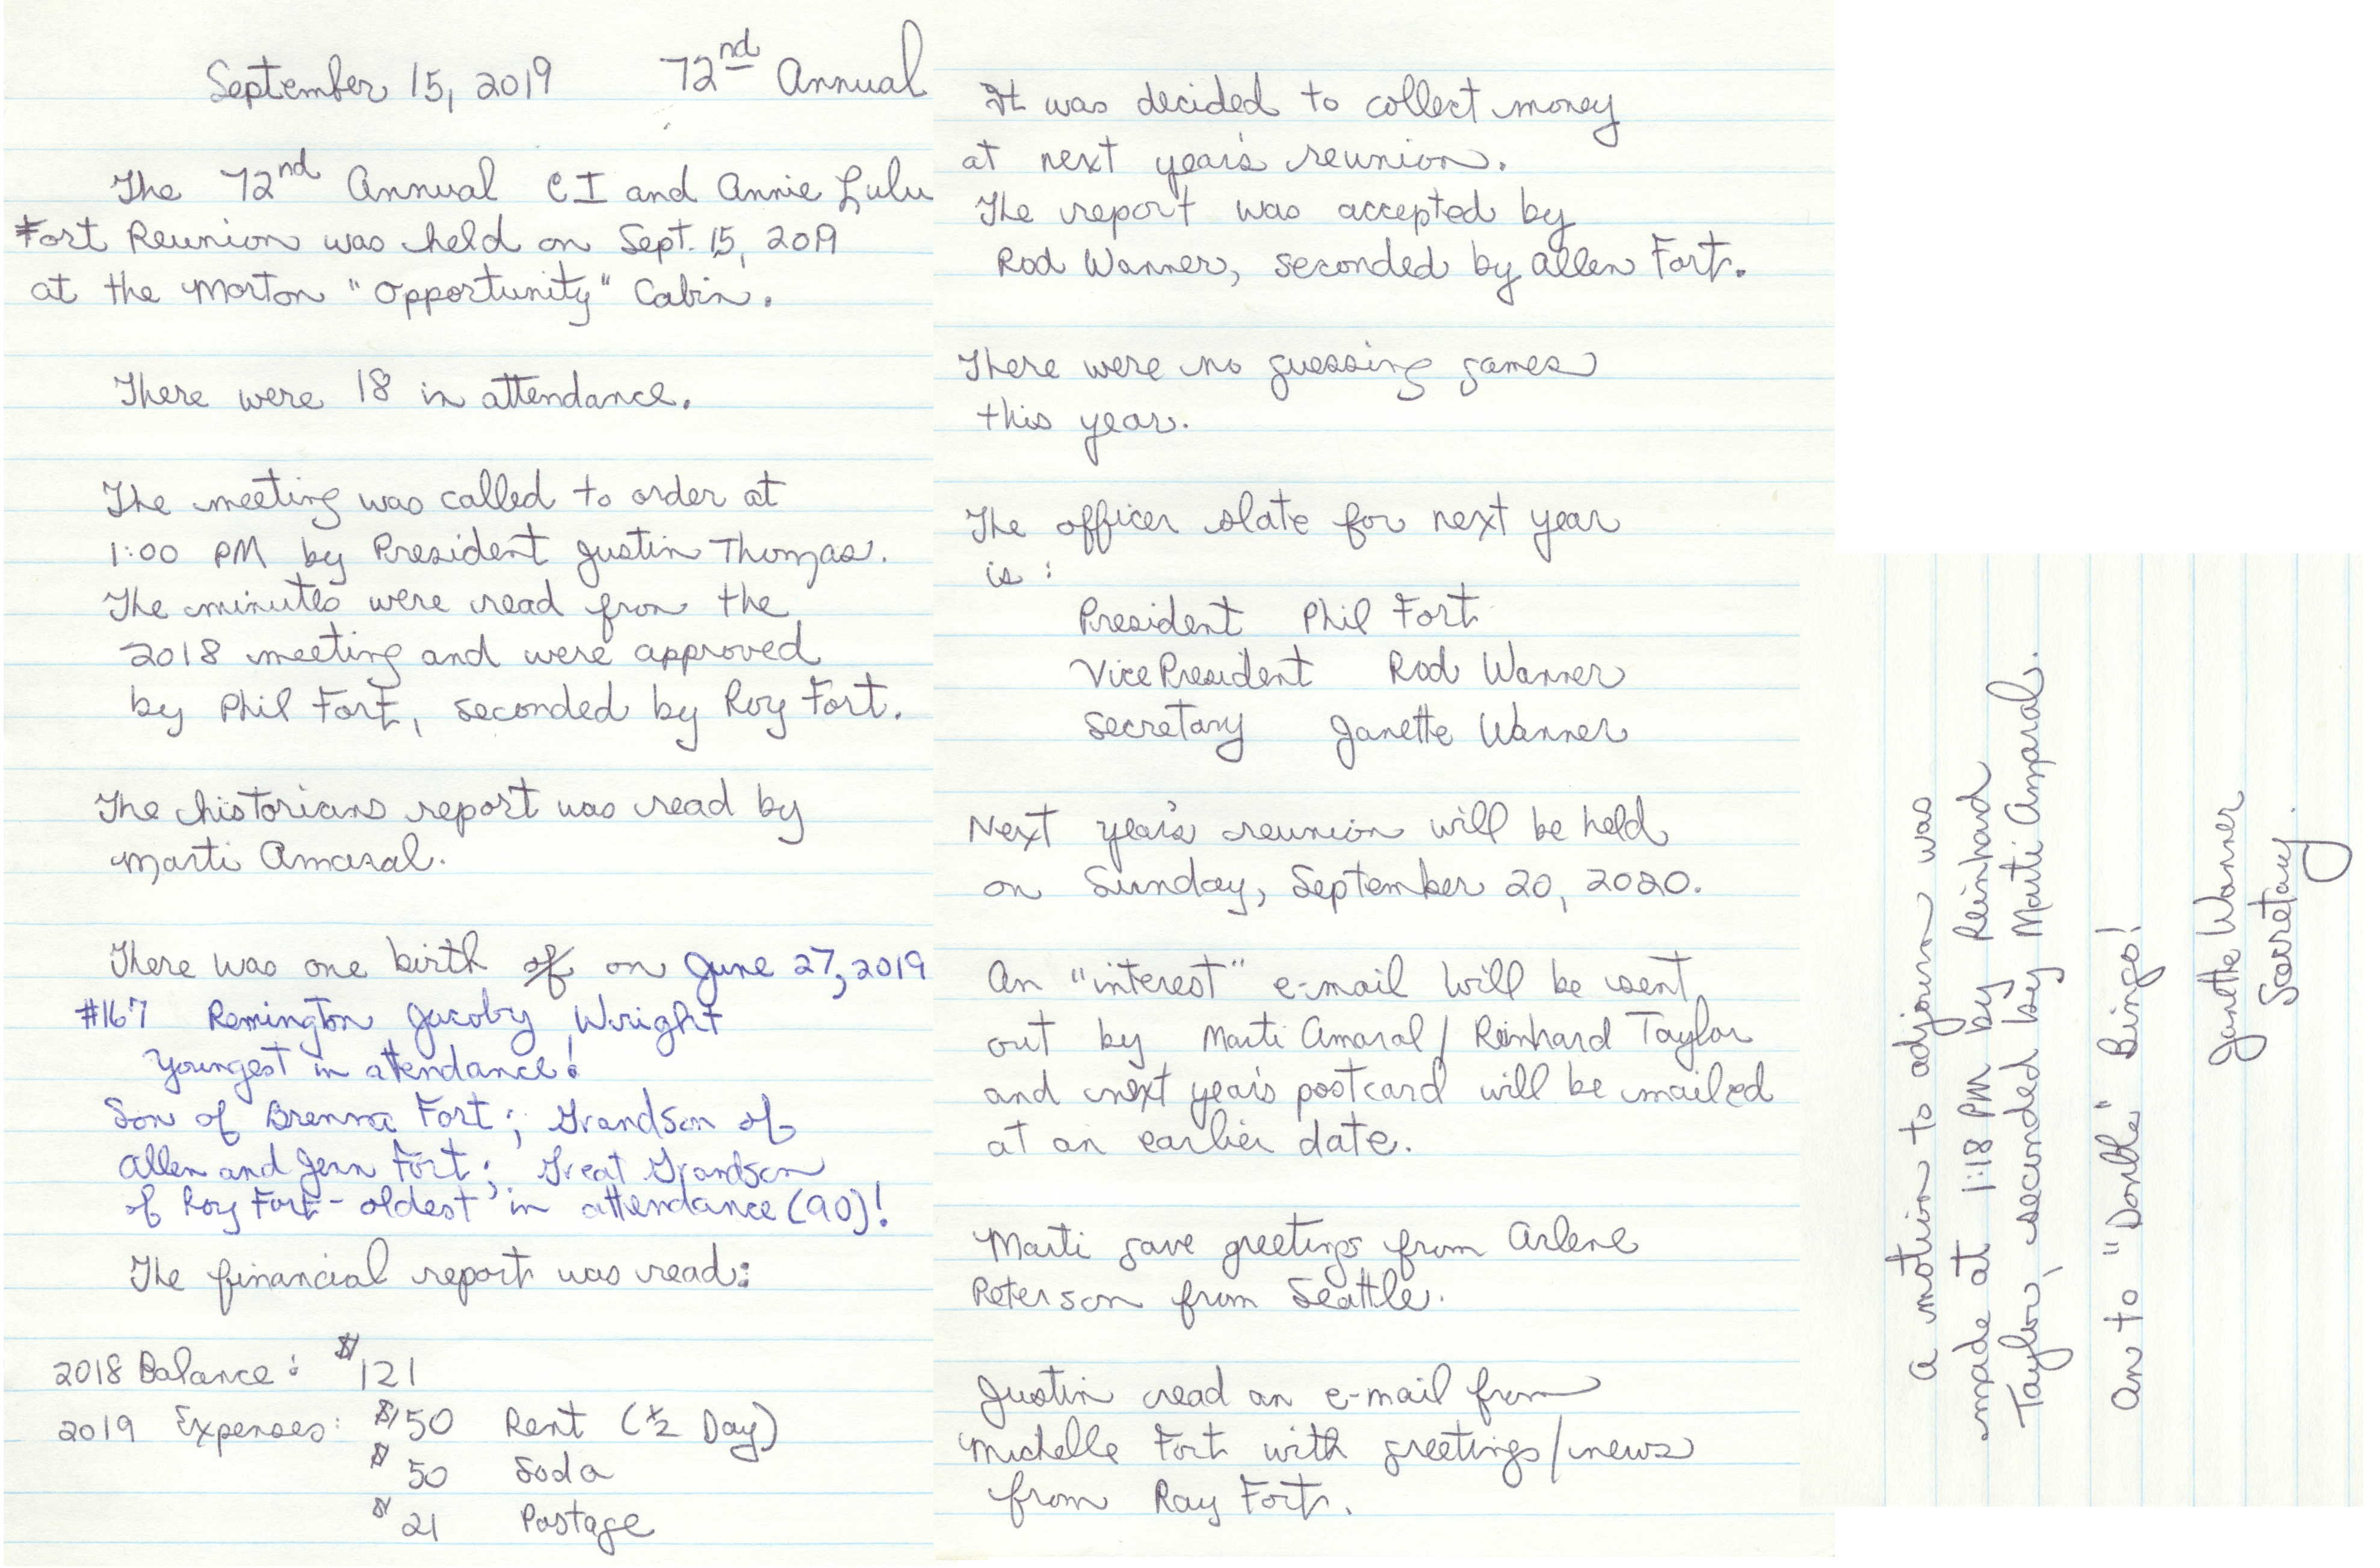 September 15, 2019 72nd Annual
The 72nd Annual CI and Annie Lulu
Fort Reunion was held on Sept. 15, 2019
at the Morton "Opportunity" Cabin.
There were 18 in attendance.
The meeting was called to order at
1:00 PM by President Justin Thomas.
The minutes were read from the
2018 meeting and were approved
by Phil Fort, seconded by Roy Fort.
The historians report was read by
Marti Amaral.
There was one birth of on June 27, 2019
#167 Remington Jacoby Wright
Youngest in attendance!
Son of Brenna Fort; Grandson of
Allen and Jenn Fort; Great Grandson
of Roy Fort - oldest in attendance (90)!
The financial report was read:
2018 Balance: $121
2019 Expenses: $50 Rent (½ Day)
$50 Soda
$21 Postage
It was decided to collect money
at next year's reunion.
The report was accepted by
Rod Wanner, seconded by Allen Fort.
There were no guessing games
this year.
The officer slate for next year
is:
President Phil Fort
Vice President Rod Wanner
Secretary Janette Wanner
Next year's reunion will be held
on Sunday, September 20, 2020.
An "interest" e-mail will be sent
out by Marti Amaral / Reinhard Taylor
and next year's postcard will be mailed
at an earlier date.
Marti gave greetings from Arlene
Peterson from Seattle.
Justin read an e-mail from
Michelle Fort with greetings/news
from Ray Fort.
A motion to adjourn was
made at 1:18 PM by Reinhard
Taylor, seconded by Marti Amaral.
On to "Double" Bingo!
Janette Wanner
Secretary